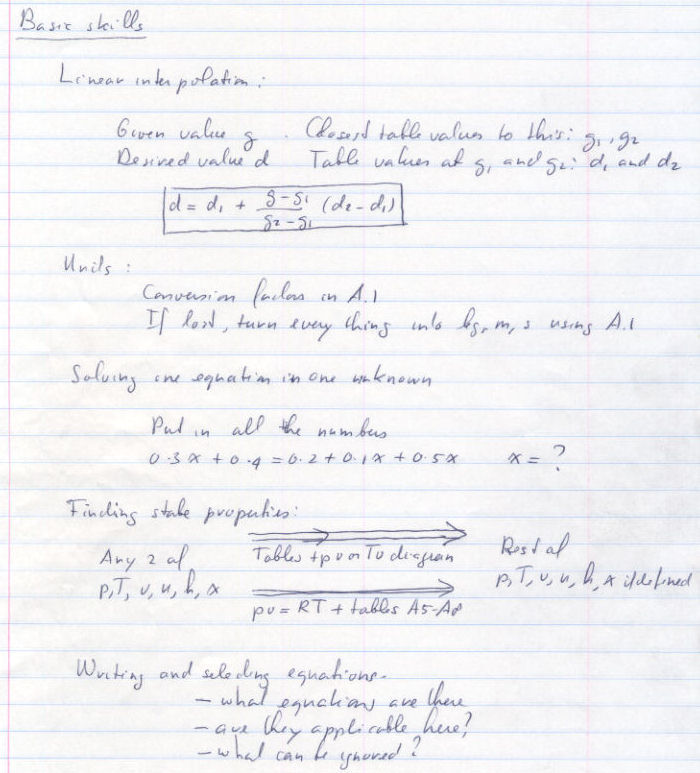 Basic skills
Linear interpolation:
Given value g. Closest table values to this: g₁, g₂
Desired value d Table values at g₁ and g₂: d₁ and d₂
d = d₁ + (g-g₁)/(g₂-g₁) (d₂-d₁)
Units:
Conversion factors in A.1
If lost, turn every thing into kg, m, s using A.1
Solving one equation in one unknown
Put in all the numbers
0.3x + 0.4 = 0.2 + 0.1x + 0.5x x = ?
Finding state properties:
Any 2 of
p, T, v, u, h, x
Tables + pv or Tv diagram
pv = RT + tables A5-A8
Rest of
p, T, v, u, h, x if defined
Writing and selecting equations.
- what equations are there
- are they applicable here?
- what can be ignored?